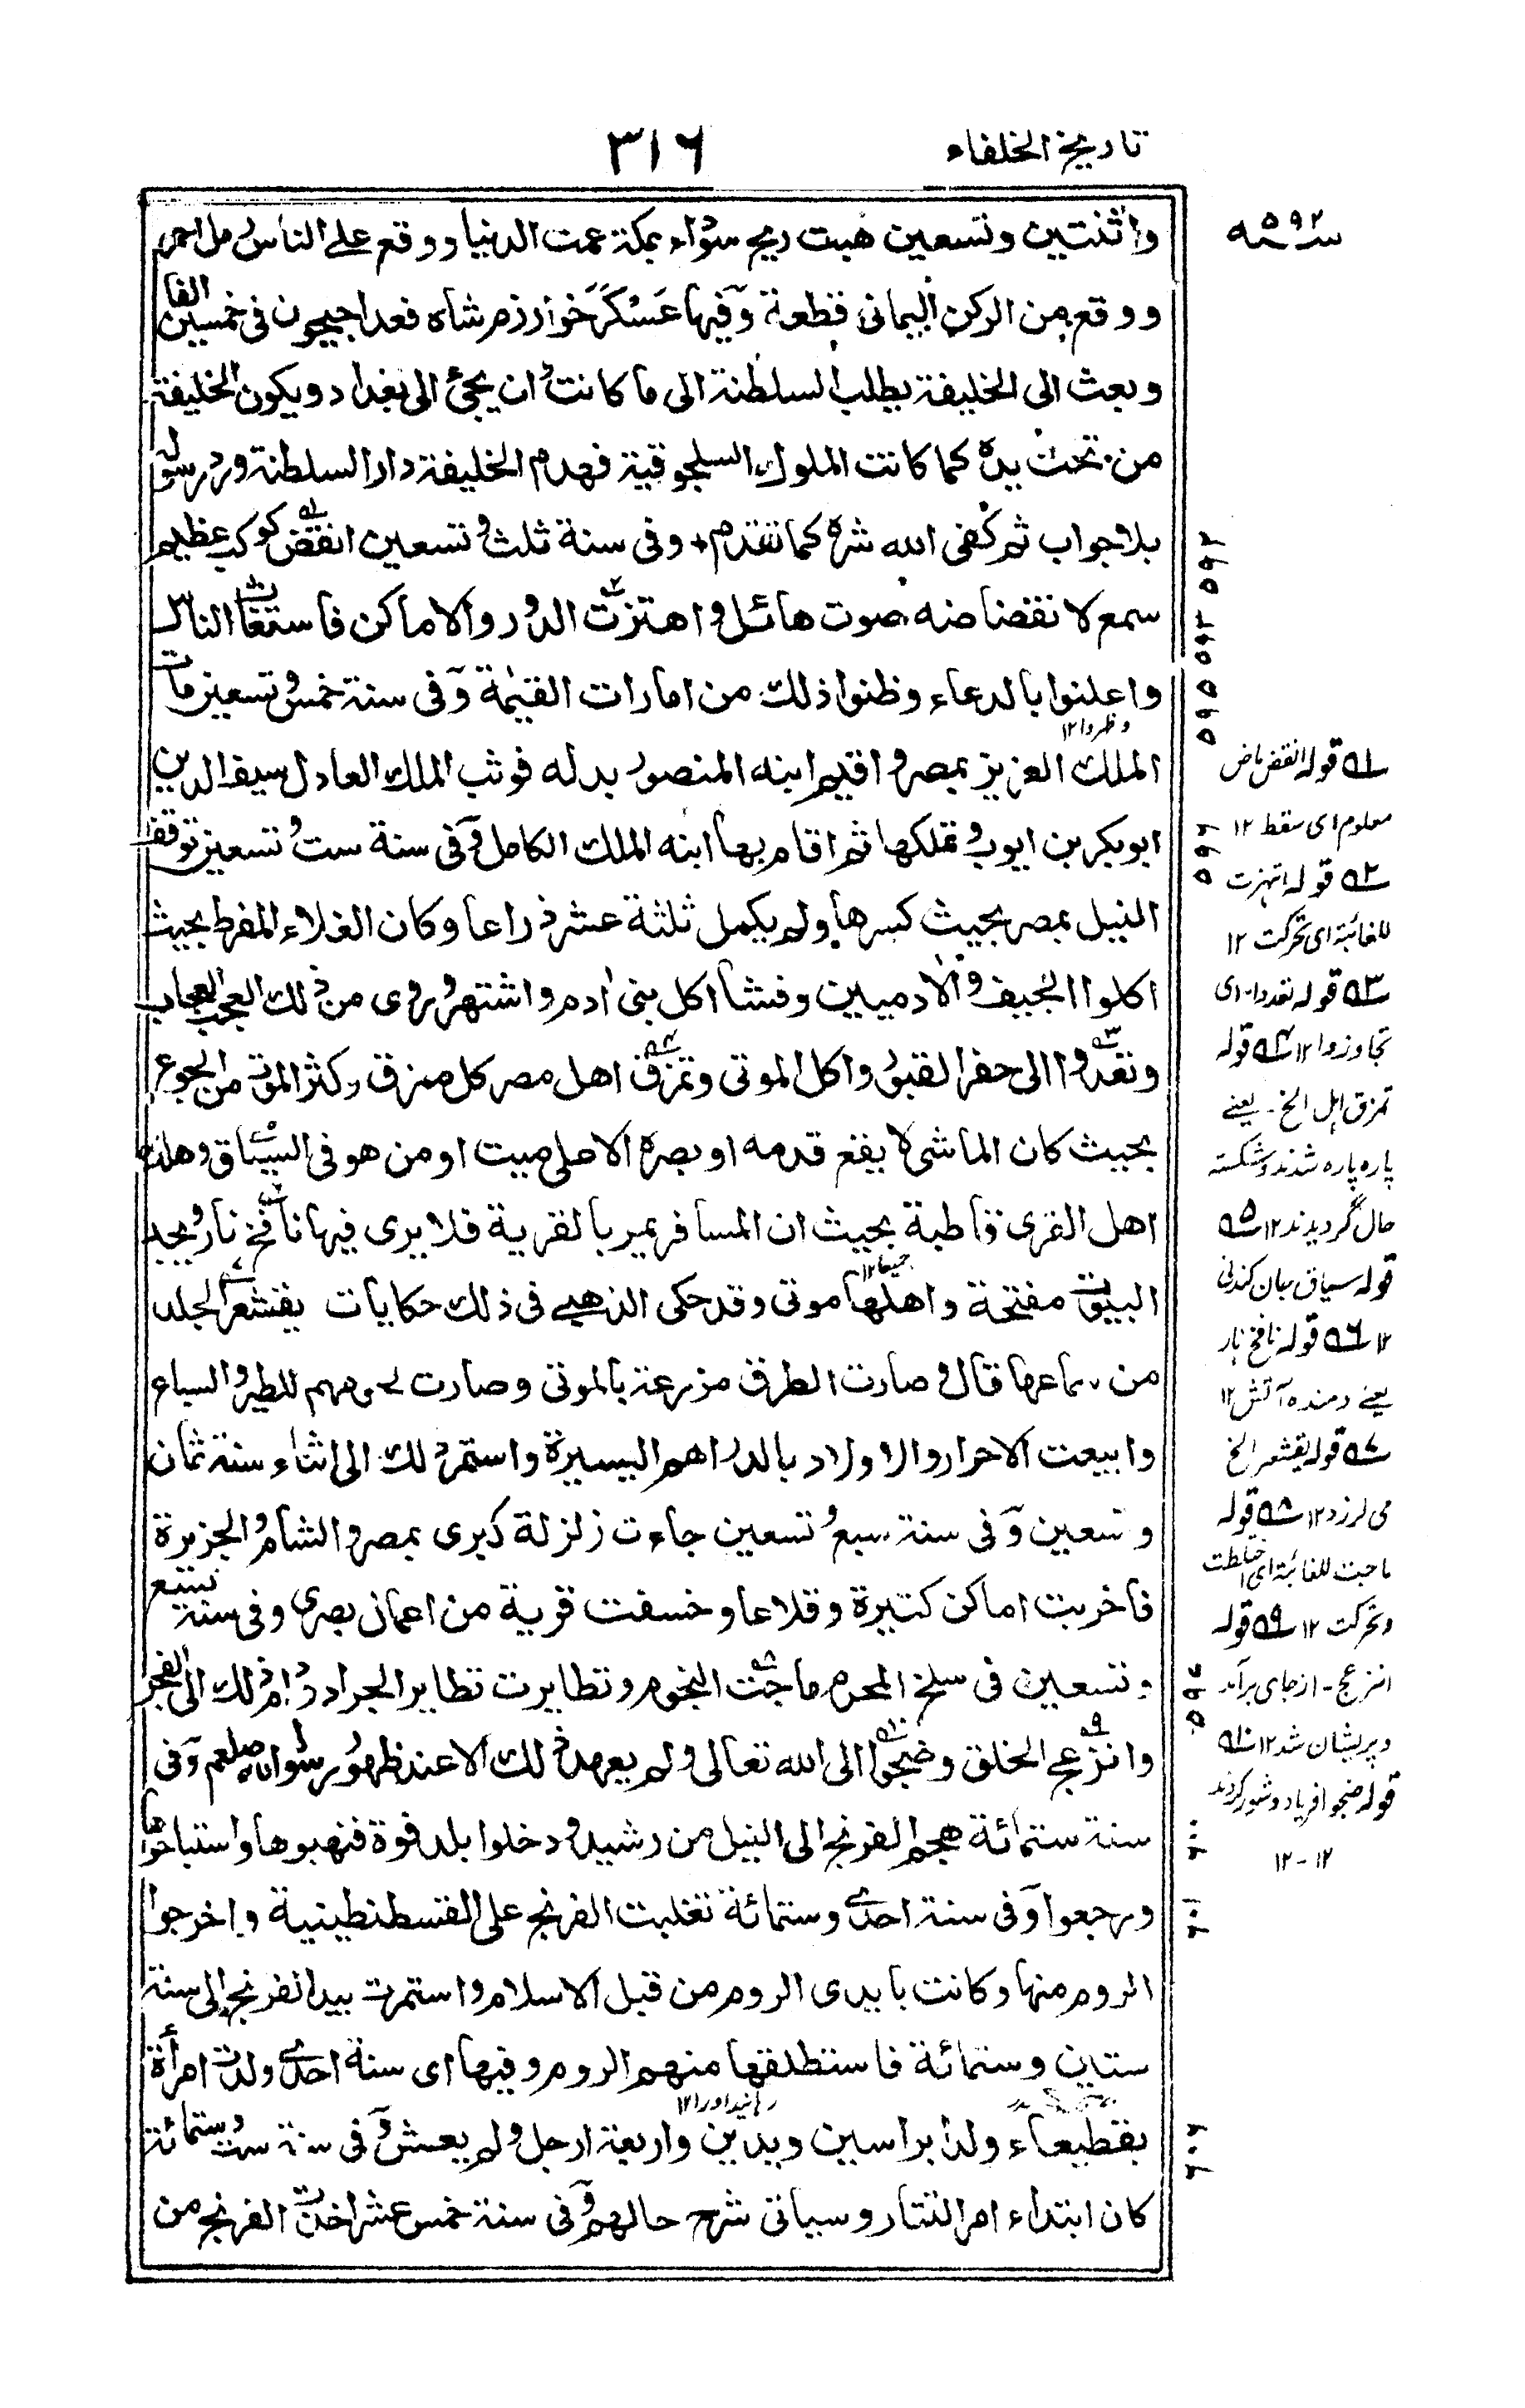 تاريخ الخلفاء
٣١٦
واثنتين وتسعين هبت ريح سوداء بمكة عمت الدنيا ووقع على الناس رمل احمر
ووقع من الركن اليماني قطعة وفيها عسكر خوارزم شاه فعدا جيحون في خمسين الفا
وبعث الى الخليفة يطلب السلطنة الى ما كانت وان يجئ الى بغداد ويكون الخليفة
من تحت يده كما كانت الملوك السلجوقية فهدم الخليفة دار السلطنة ورد رسوله
بلا جواب ثم كفى الله شره كما تقدم + وفي سنة ثلث وتسعين انقض كوكب عظيم
سمع لانقضاضه صوت هائل واهتزت الدور والاماكن فاستغاث الناس
واعلنوا بالدعاء وظنوا ذلك من امارات القيمة وفي سنة خمس وتسعين مات
الملك العزيز بمصر واقيم ابنه المنصور بدله فوثب الملك العادل سيف الدين
ابوبكر بن ايوب وتملكها ثم اقام بها ابنه الملك الكامل وفي سنة ست وتسعين توقف
النيل بمصر بحيث كسرها ولم يكمل ثلثة عشر ذراعا وكان الغلاء المفرط بحيث
اكلوا الجيف والادميين وفشا اكل بني ادم واشتهر وروى من ذلك العجب العجاب
وتعدوا الى حفر القبور واكل الموتى وتمزق اهل مصر كل ممزق وكثر الموت من الجوع
بحيث كان الماشي لا يقع قدمه او بصره الا على ميت او من هو في السياق وهلك
اهل القرى قاطبة بحيث ان المسافر يمر بالقرية فلا يرى فيها نافخ نار ويجد
جميعا ١٢
البيوت مفتحة واهلها موتى وقد حكى الذهبي في ذلك حكايات يقشعر الجلد
من سماعها قال وصارت الطرق مزرعة بالموتى وصارت لحومهم للطير والسباع
وابيعت الاحرار والاولاد بالدراهم اليسيرة واستمر ذلك الى اثناء سنة ثمان
وتسعين وفي سنة سبع وتسعين جاءت زلزلة كبرى بمصر والشام والجزيرة
فاخربت اماكن كثيرة وقلاعا وخسفت قرية من اعمال بصرى وفي سنة تسع
وتسعين في سلخ المحرم ماجت النجوم وتطايرت تطاير الجراد ودام ذلك الى الفجر
وانزعج الخلق وضجوا الى الله تعالى ولم يعهد ذلك الا عند ظهور رسول الله صلعم وفي
سنة ستمائة هجم الفرنج الى النيل من رشيد ودخلوا بلد فوة فنهبوها واستباحوها
ورجعوا وفي سنة احدى وستمائة تغلبت الفرنج على القسطنطينية واخرجوا
الروم منها وكانت بايدي الروم من قبل الاسلام واستمرت بيد الفرنج الى سنة
ستين وستمائة فاستطلقها منهم الروم وفيها اى سنة احدى ولدت امرأة
بقطيعاء ولدا براسين ويدين واربعة ارجل ولم يعش وفي سنة ست وستمائة
كان ابتداء امر التتار وسياتى شرح حالهم وفي سنة خمس عشر اخذت الفرنج من
سنه ٥٩٢
٥٩٢
٥٩٣
٥٩٥
٥٩٦
٥٩٧
٦٠٠
٦٠١
٦٠٦
١ قوله انقض ماض
معلوم اى سقط ١٢
٢ قوله اهتزت
للغائبة اى تحركت ١٢
٣ قوله تعدوا - اى
تجاوزوا ١٢ ٤ قوله
تمزق اهل الخ - يعنے
پاره پاره شدند وشكسته
حال گرديدند ١٢ ٥
قوله سياق جان كندنى
١٢ ٦ قوله نافخ نار
يعنے دمنده آتش ١٢
٧ قوله يقشعر الخ
مى لرزد ١٢ ٨ قوله
ماجت للغائبة اى اختلطت
وتحركت ١٢ ٩ قوله
انزعج - از جاى برآمد
وپريشان شد ١٢ ١٠
قوله ضجوا فرياد وشور كردند
١٢ - ١٢